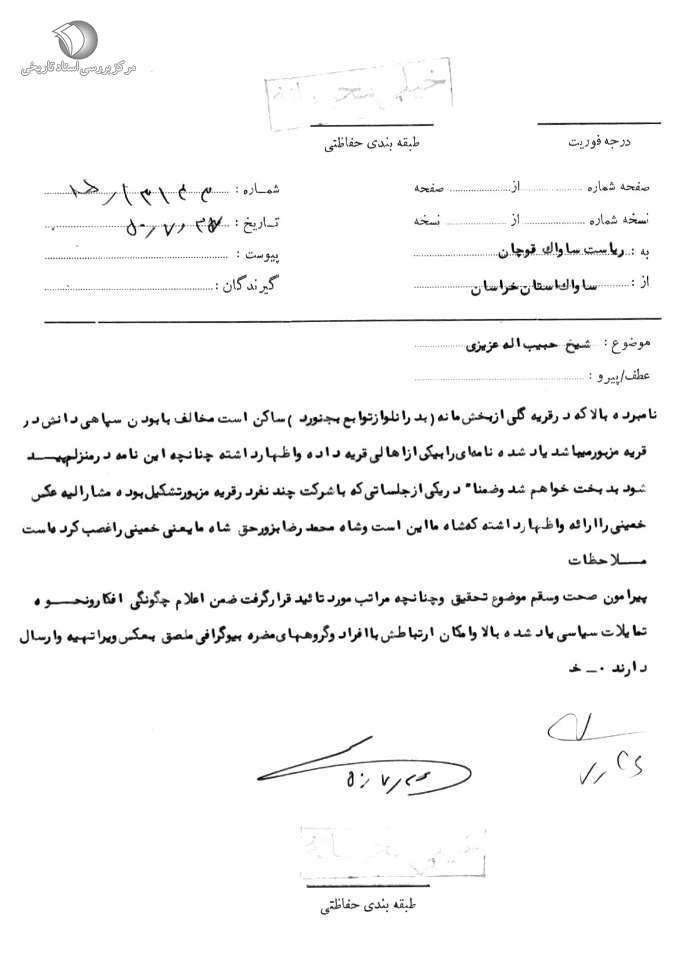 مرکز بررسی اسناد تاریخی
خیلی محرمانه
طبقه بندی حفاظتی
درجه فوریت
صفحه شماره ........ از ........ صفحه
نسخه شماره ........ از ........ نسخه
به : ریاست ساواک قوچان
از : ساواک استان خراسان
شماره :
تاریخ :
پیوست :
گیرندگان :
موضوع : شیخ حبیب اله عزیزی
عطف/پیرو :
نامبرده بالا که در قریه گلی از بخش مانه (بدرانلو از توابع بجنورد) ساکن است مخالف با بودن سپاهی دانش در
قریه مزبور میباشد یاد شده نامه‌ای را بیکی از اهالی قریه داده و اظهار داشته چنانچه این نامه در منزلم پیـــد
شود بدبخت خواهم شد وضمنا" در یکی از جلساتی که با شرکت چند نفر در قریه مزبور تشکیل بوده مشارالیه عکس
خمینی را ارائه و اظهار داشته که شاه ما این است و شاه محمد رضا بزور حق شاه ما یعنی خمینی را غصب کرده است
مـــلاحظات
پیرامون صحت وسقم موضوع تحقیق وچنانچه مراتب مورد تائید قرار گرفت ضمن اعلام چگونگی افکار ونحـــوه
تمایلات سیاسی یاد شده بالا وامکان ارتباطش با افراد وگروههای مضره بیوگرافی ملصق بعکس ویرا تهیه وارسال
دارند ۰ـ خ
۵۰/۷/۲۶
طبقه بندی حفاظتی